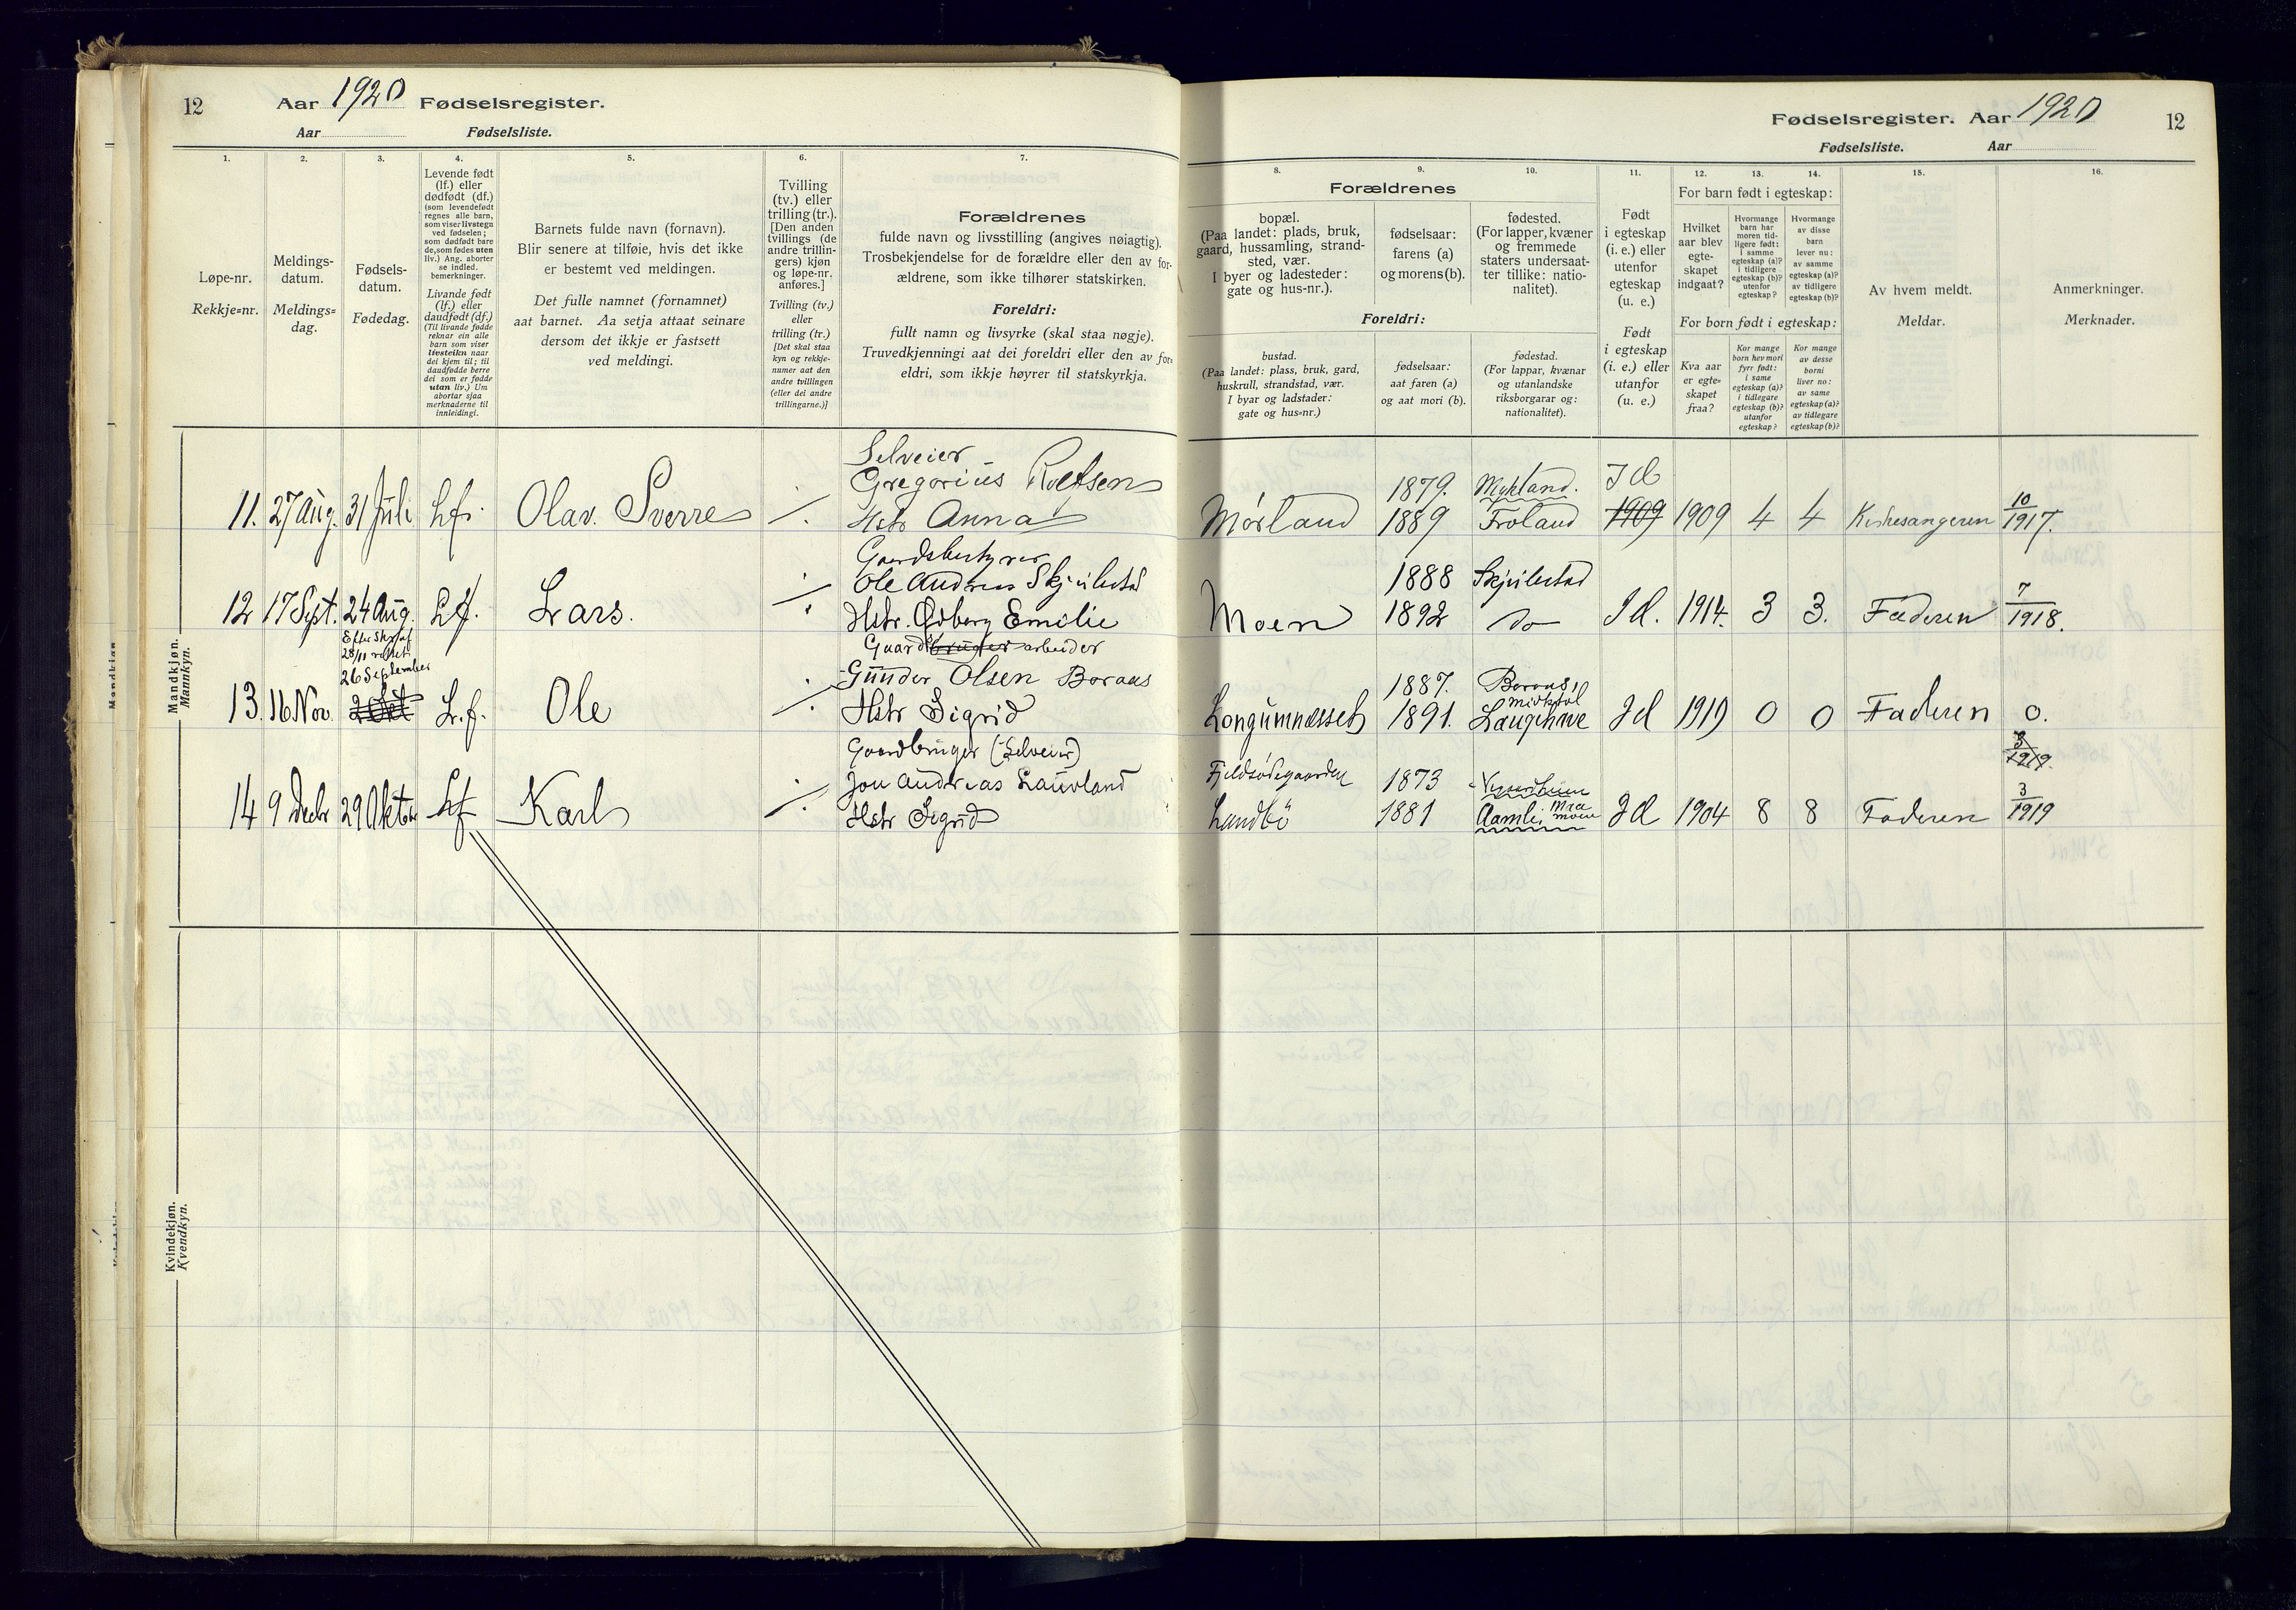 12
Aar 1920 Fødselsregister.
Aar Fødselsliste.
1.
2.
3.
4.
5.
6.
7.
Løpe-nr.
Rekkje=nr.
Meldings-
datum.
Meldings=
dag.
Fødsels-
datum.
Fødedag.
Levende født
(lf.) eller
dødfødt (df.)
(som levendefødt
regnes alle barn,
som viser livstegn
ved fødselen;
som dødfødt bare
de, som fødes uten
liv.) Ang. aborter
se indled.
bemerkninger.
Livande født
(lf.) eller
daudfødt (df.)
(Til livande fødde
reknar ein alle
barn som viser
livsteikn naar
dei kjem til; til
daudfødde berre
dei som er fødde
utan liv.) Um
abortar sjaa
merknaderne til
innleidingi.
Barnets fulde navn (fornavn).
Blir senere at tilføie, hvis det ikke
er bestemt ved meldingen.
Det fulle namnet (fornamnet)
aat barnet. Aa setja attaat seinare
dersom det ikkje er fastsett
ved meldingi.
Tvilling
(tv.) eller
trilling (tr.).
[Den anden
tvillings (de
andre trillin-
gers) kjøn
og løpe-nr.
anføres.]
Tvilling (tv.)
eller
trilling (tr.)
[Det skal staa
kyn og rekkje-
numer aat den
andre tvillingen
(eller dei andre
trillingarne.)]
Forældrenes
fulde navn og livsstilling (angives nøiagtig).
Trosbekjendelse for de forældre eller den av for-
ældrene, som ikke tilhører statskirken.
Foreldri:
fullt namn og livsyrke (skal staa nøgje).
Truvedkjenningi aat dei foreldri eller den av for-
eldri, som ikkje høyrer til statskyrkja.
Mandkjøn.
Mannkyn.
Selveier
Gregorius Roelsen
11. 27 Aug. 31 Juli Lf. Olav. Sverre ⁒ Hstr Anna
Gaardsbestyrer
Ole Andreas Skjeilestad
12 17 Sept. 24 Aug. Lf. Lars. ⁒ Hstr. Osberg Emilie
Gaardbruger arbeider
26 September
Gunder Olsen Boraas
13. 16 Nov. 2 Okt L.f. Ole ⁒ Hstr Sigrid
Gaardbruger (Selveier)
Jon Andreas Laurland
14 9 Decbr 29 Oktober Lf Karl ⁒ Hstr Sigrid
Kvindekjøn.
Kvendkyn.
Fødselsregister. Aar 1920
12
Fødselsliste. Aar
8.
9.
10.
11.
12.
13.
14.
15.
16.
Forældrenes
bopæl.
(Paa landet: plads, bruk,
gaard, hussamling, strand-
sted, vær.
I byer og ladesteder:
gate og hus-nr.).
fødselsaar:
farens (a)
og morens (b).
fødested.
(For lapper, kvæner
og fremmede
staters undersaat-
ter tillike: natio-
nalitet).
Foreldri:
bustad.
(Paa landet: plass, bruk, gard,
huskrull, strandstad, vær.
I byar og ladstader:
gate og hus=nr.)
fødselsaar:
aat faren (a)
og aat mori (b).
fødestad.
(For lappar, kvænar
og utanlandske
riksborgarar og:
nationalitet).
Født
i egteskap
(i. e.) eller
utenfor
egteskap
(u. e.)
Født
i egteskap
(i. e.) eller
utanfor
(u. e.)
For barn født i egteskap:
Hvilket
aar blev
egte-
skapet
indgaat?
Hvormange
barn har
moren tid-
ligere født:
i samme
egteskap (a)?
i tidligere
egteskap (b)?
utenfor
egteskap?
Hvormange
av disse
barn
lever nu:
av samme
egteskap (a)?
av tidligere
egteskap (b)?
For born født i egteskap:
Kva aar
er egte=
skapet
fraa?
Kor mange
born hev mori
fyrr født:
i same
egteskap (a)?
i tidlegare
egteskap (b)?
utanfor
egteskap?
Kor mange
av desse
borni
liver no:
av same
egteskap (a)?
av tidlegare
egteskap (b)?
Av hvem meldt.
Meldar.
Anmerkninger.
Merknader.
1879. Mykland. I d
Mørland 1889 Froland 1909 1909 4 4 Kirkesangeren 10/1917.
1888 Skjeilestad
Moen 1892 do I d. 1914. 3 3. Faderen 7/1918.
1887. Boraas,
Longumnesset 1891. I d 1919 0 0 Faderen 0.
3/1919.
1873
Landbö 1881 Aamli. I d 1904 8 8 Faderen 3/1919